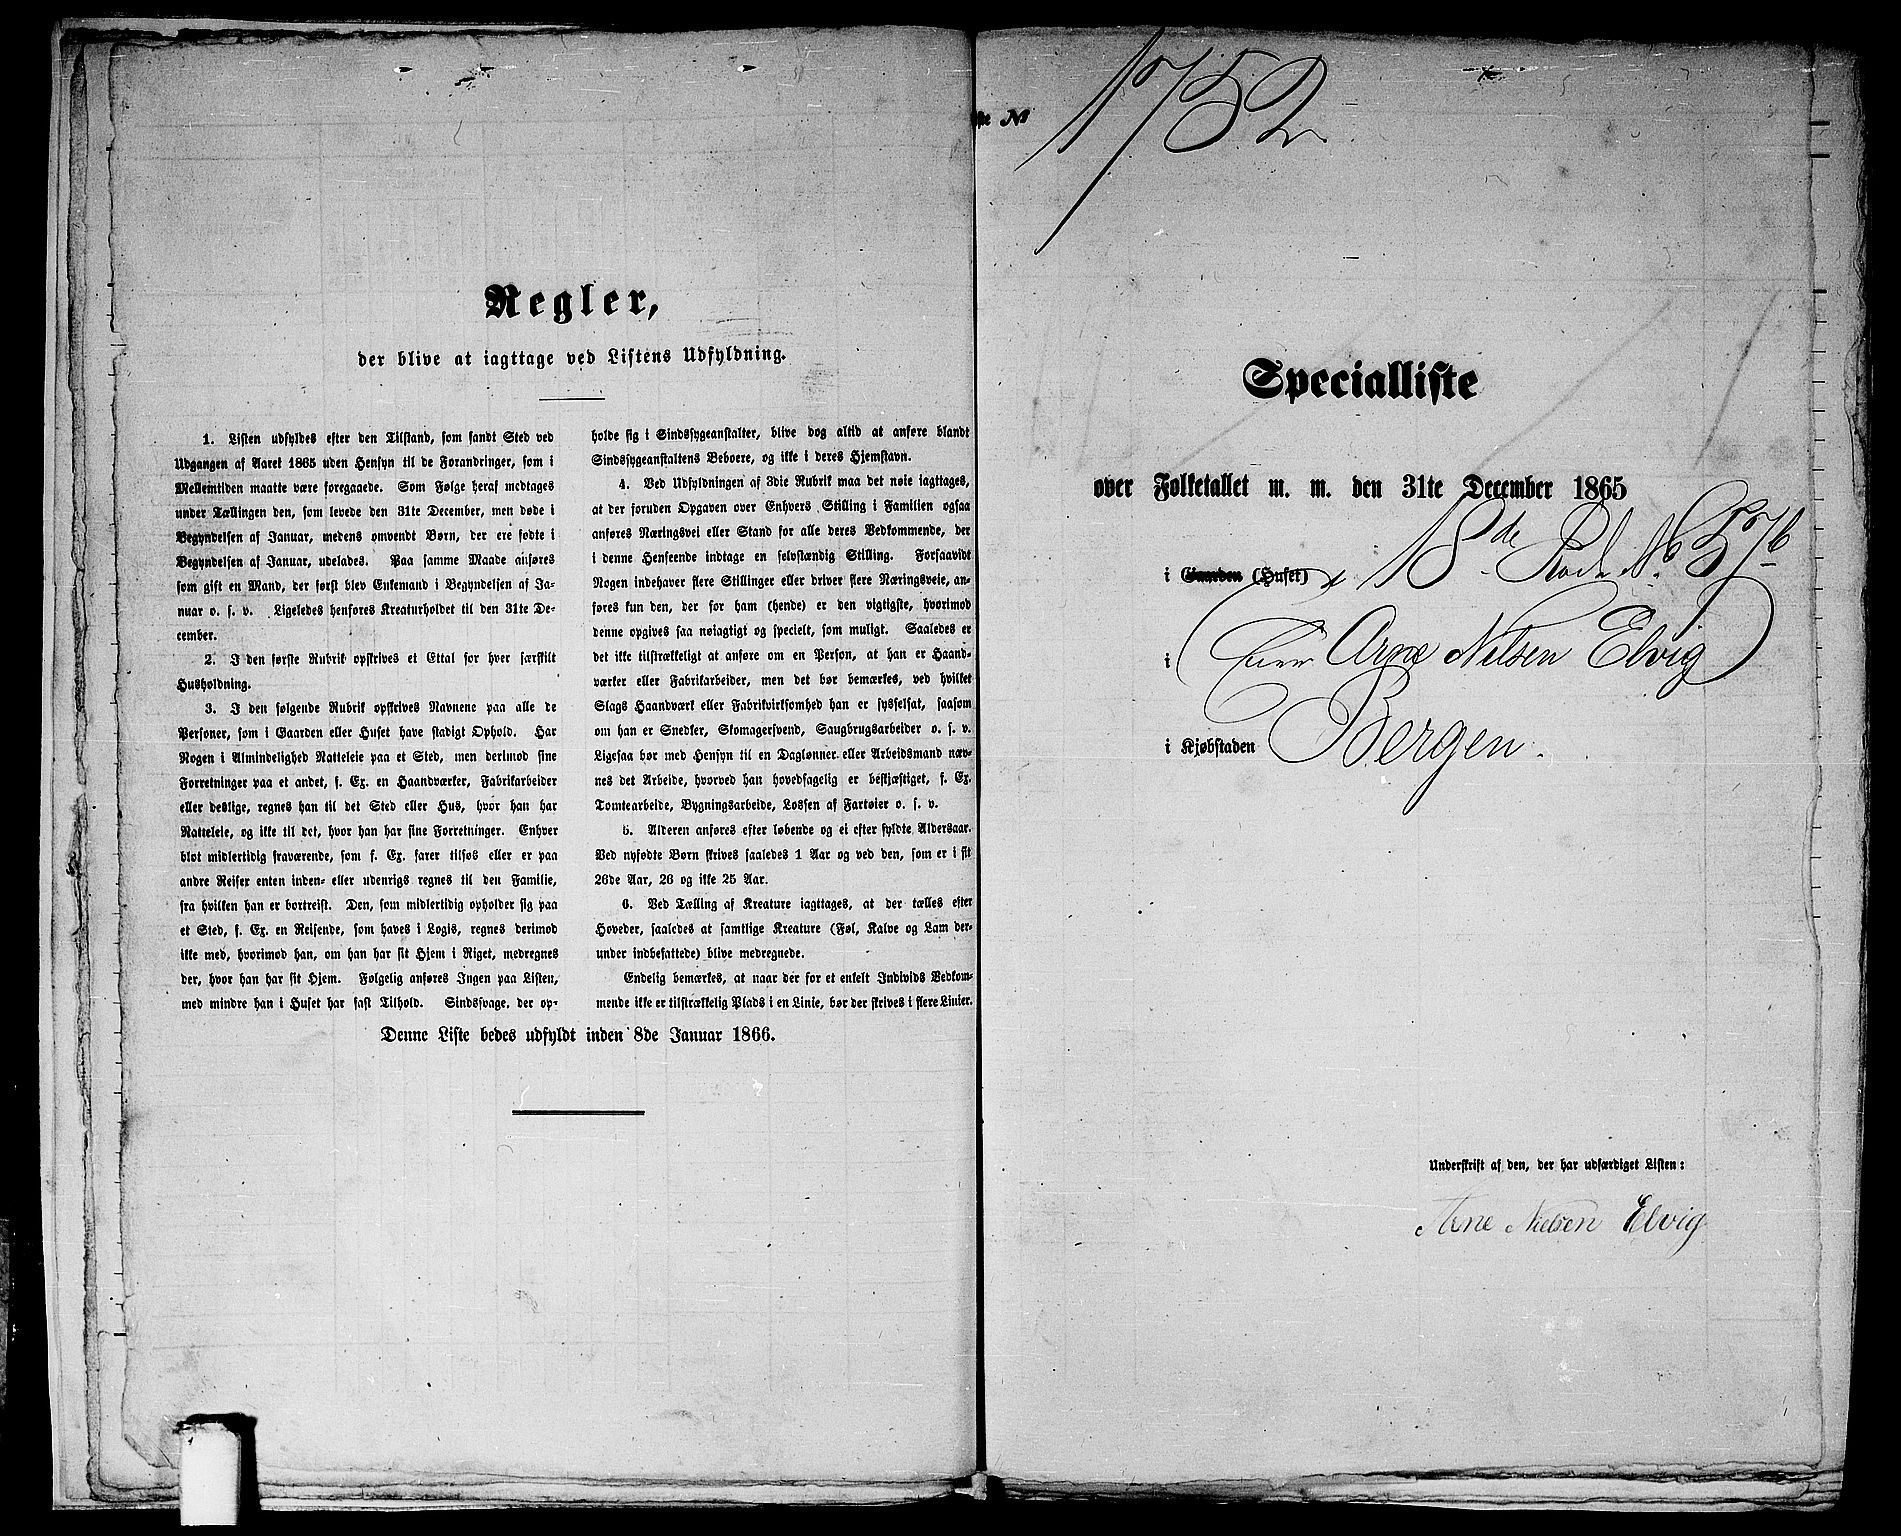 Regler,
der blive at iagttage ved Listens Udfyldning.
1. Listen udfyldes efter den Tilstand, som fandt Sted ved
Udgangen af Aaret 1865 uden Hensyn til de Forandringer, som i
Mellemtiden maatte være foregaaede. Som Følge heraf medtages
under Tællingen den, som levede den 31te December, men døde i
Begyndelsen af Januar, medens omvendt Børn, der ere fødte i
Begyndelsen af Januar, udelades. Paa samme Maade anføres
som gift en Mand, der først blev Enkemand i Begyndelsen af Ja-
nuar o. s. v. Ligeledes henføres Kreaturholdet til den 31te De-
cember.
2. I den første Rubrik opskrives et Ettal for hver særskilt
Husholdning.
3. I den følgende Rubrik opskrives Navnene paa alle de
Personer, som i Gaarden eller Huset have stadigt Ophold. Har
Nogen i Almindelighed Natteleie paa et Sted, men derimod sine
Forretninger paa et andet, f. Ex. en Haandværker, Fabrikarbeider
eller deslige, regnes han til det Sted eller Hus, hvor han har
Natteleie, og ikke til det, hvor han har sine Forretninger. Enhver
blot midlertidig fraværende, som f. Ex. farer tilsøs eller er paa
andre Reiser enten inden- eller udenrigs regnes til den Familie,
fra hvilken han er bortreist. Den, som midlertidig opholder sig paa
et Sted, f. Ex. en Reisende, som haves i Logis, regnes derimod
ikke med, hvorimod han, om han har sit Hjem i Riget, medregnes
der, hvor han har sit Hjem. Følgelig anføres Ingen paa Listen,
med mindre han i Huset har fast Tilhold. Sindssvage, der op-
holde sig i Sindssygeanstalter, blive dog altid at anføre blandt
Sindssygeanstaltens Beboere, og ikke i deres Hjemstavn.
4. Ved Udfyldningen af 3die Rubrik maa det nøie iagttages,
at der foruden Opgaven over Enhvers Stilling i Familien ogsaa
anføres Næringsvei eller Stand for alle deres Vedkommende, der
i denne Henseende indtage en selvstændig Stilling. Forsaavidt
Nogen indehaver flere Stillinger eller driver flere Næringsveie, an-
føres kun den, der for ham (hende) er den vigtigste, hvorimod
denne opgives saa nøiagtigt og specielt, som muligt. Saaledes er
det ikke tilstrækkeligt at anføre om en Person, at han er Haand-
værker eller Fabrikarbeider, men det bør bemærkes, ved hvilket
Slags Haandværk eller Fabrikvirksomhed han er sysselsat, saasom
om han er Snedker, Skomagersvend, Saugbrugsarbeider o. s. v.
Ligesaa bør med Hensyn til en Daglønner eller Arbeidsmand næv-
nes det Arbeide, hvorved han hovedsagelig er beskjæftiget, f. Ex.
Tomtearbeide, Bygningsarbeide, Lossen af Fartøier o. s. v.
5. Alderen anføres efter løbende og ei efter fyldte Aldersaar.
Ved nyfødte Børn skrives saaledes 1 Aar og ved den, som er i sit
26de Aar, 26 og ikke 25 Aar.
6. Ved Tælling af Kreature iagttages, at der tælles efter
Hoveder, saaledes at samtlige Kreature (Føl, Kalve og Lam der-
under indbefattede) blive medregnede.
Endelig bemærkes, at naar der for et enkelt Individs Vedkom-
mende ikke er tilstrækkelig Plads i en Linie, bør der skrives i flere Linier.
Denne Liste bedes udfyldt inden 8de Januar 1866.
ste No 1752
Specialliste
over Folketallet m. m. den 31te December 1865
i Gaarden (Huset) 18de Rode No 576
i Arne Nilsen Elvig
i Kjøbstaden Bergen.
Underskrift af den, der har udfærdiget Listen:
Arne Nielsen Elvig